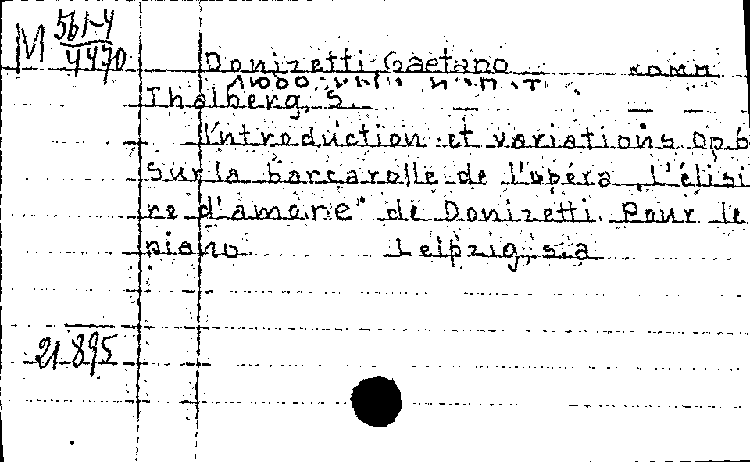 M 561-4
4470
Donizetti Gaetano комм
Thalberg, S.
Introduction et variations op. 6
sur la barcarolle de l'opéra „L'élisi
re d'amore" de Donizetti. Pour le
piano Leipzig, s.a
21 895